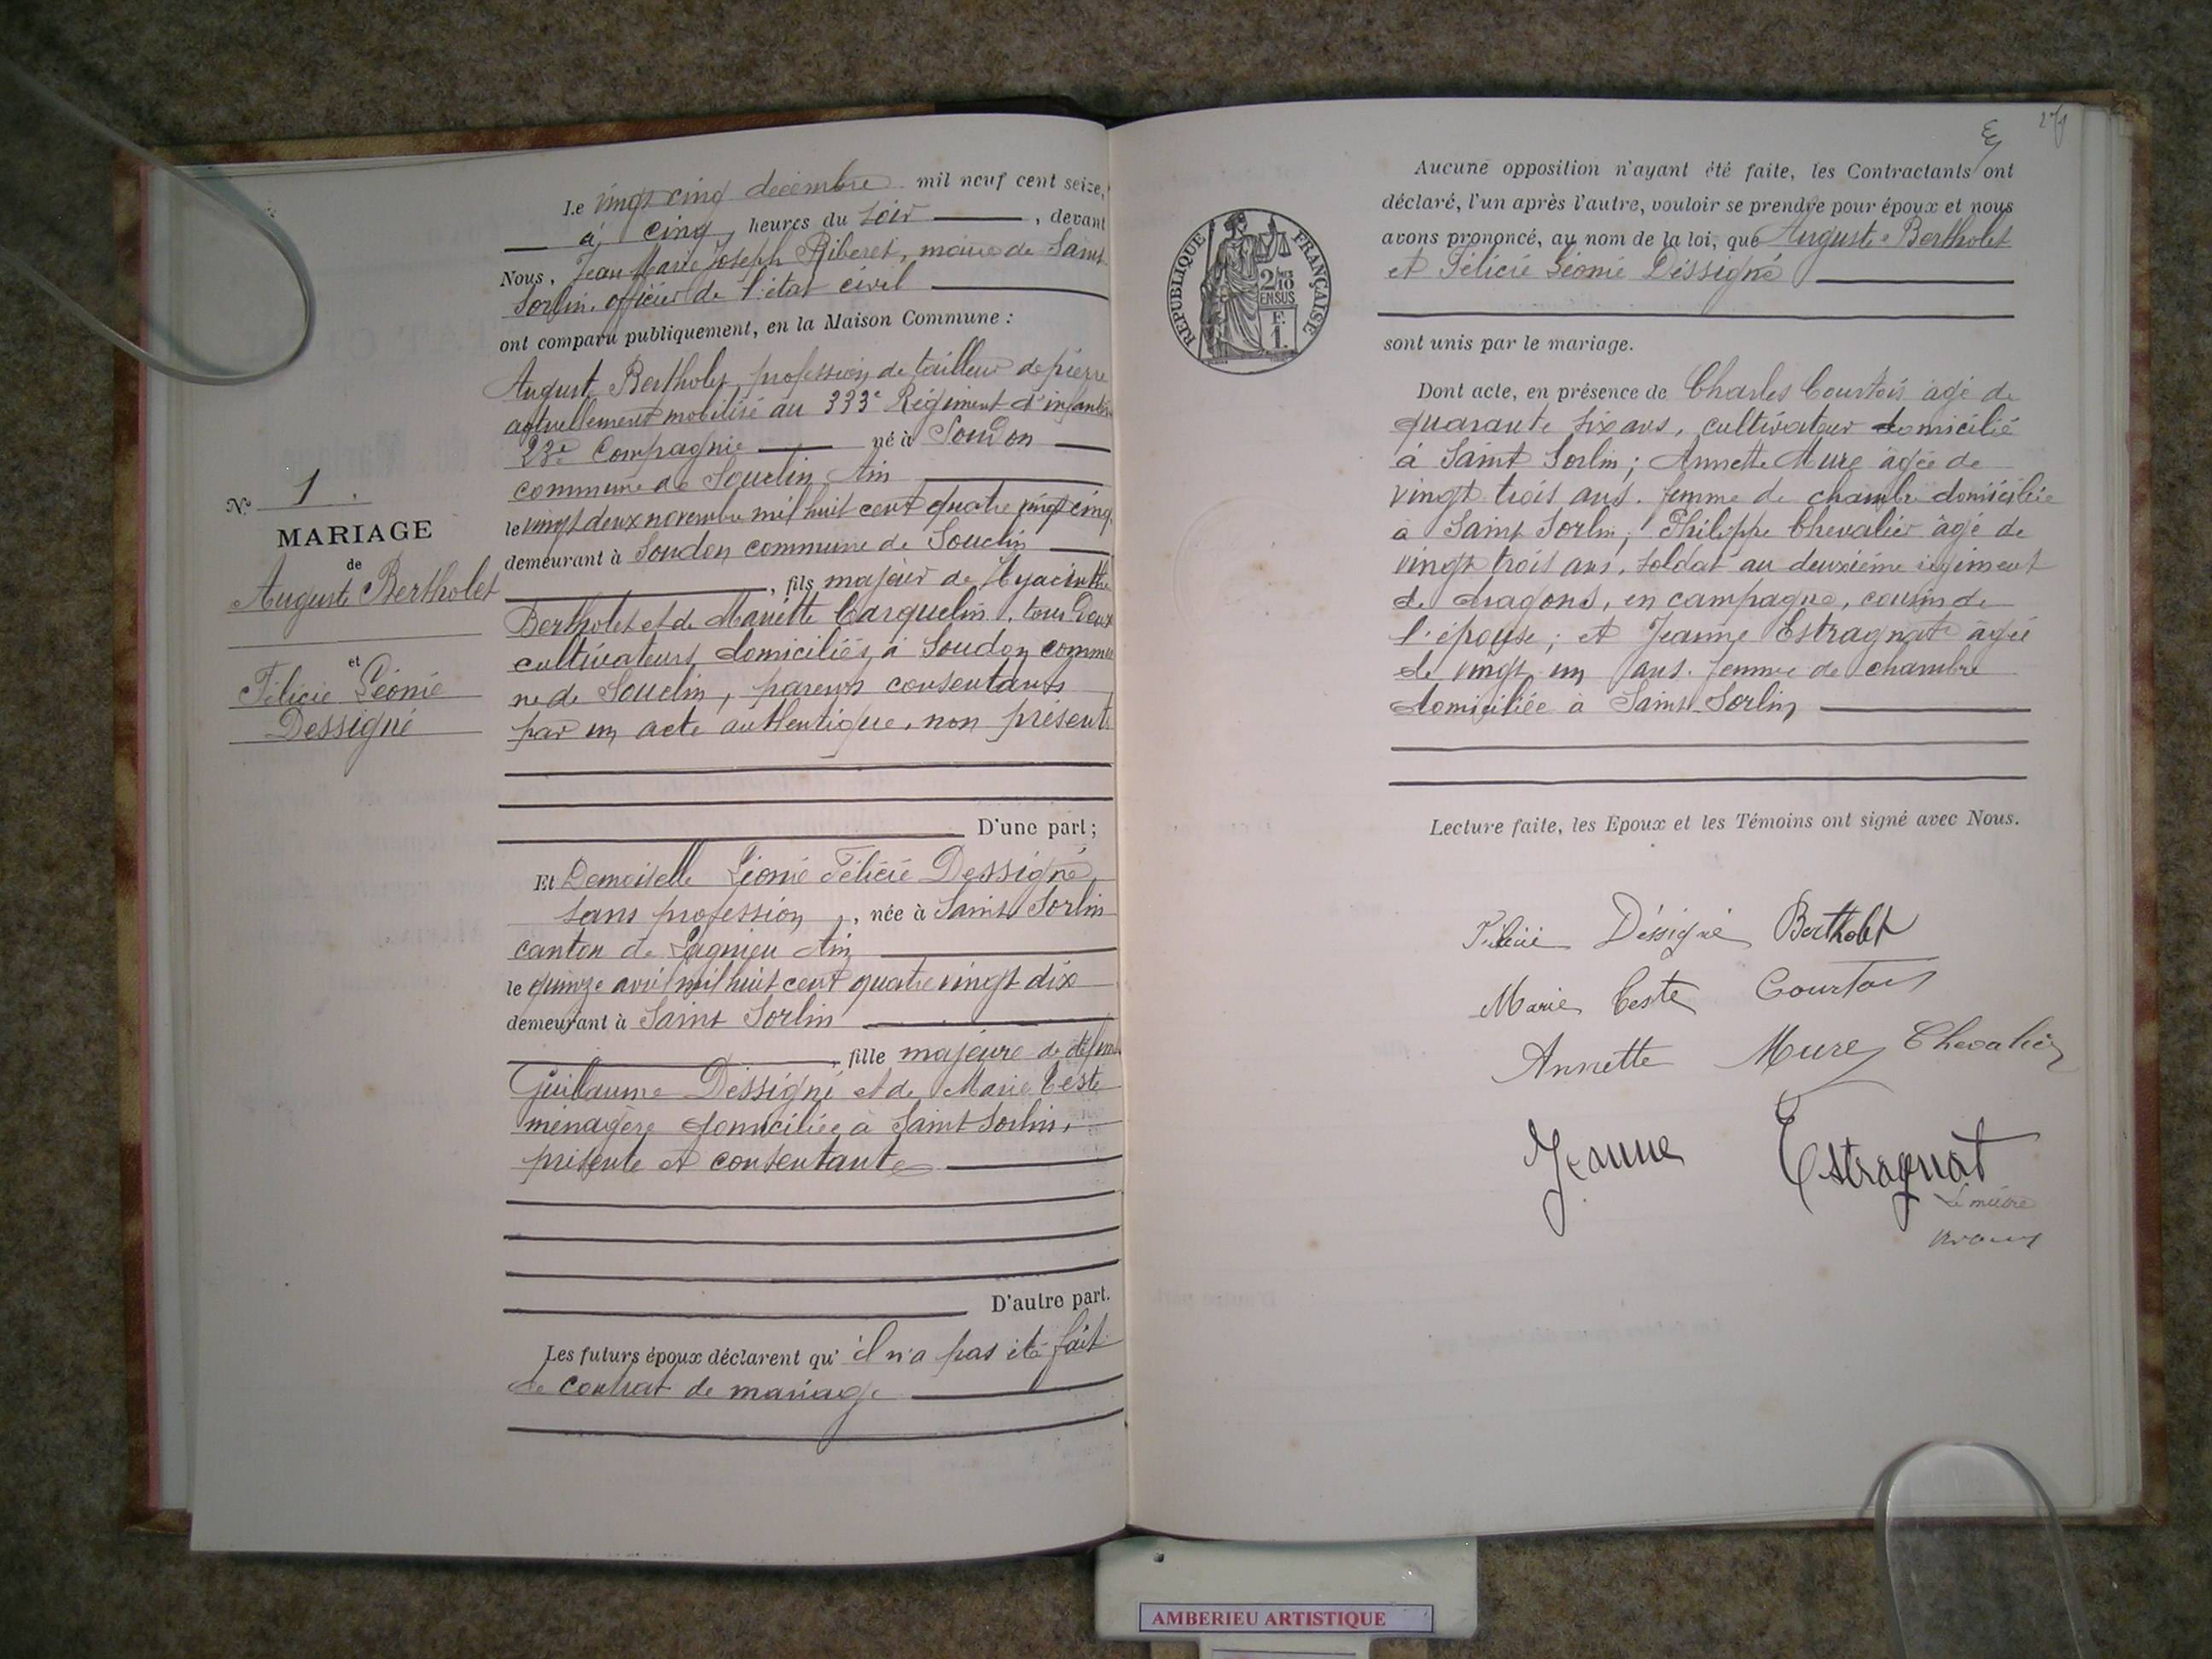 N° 1.
MARIAGE
de
Auguste Bertholet
et
Félicie Léonie
Dessigné
Le vingt cinq décembre mil neuf cent seize,
à cinq heures du soir, devant
Nous, Jean Marie Joseph Riberet, maire de Saint
Sorlin, officier de l'état civil
ont comparu publiquement, en la Maison Commune :
Auguste Bertholet, profession de tailleur de pierre
actuellement mobilisé au 333e Régiment d'infanterie
23e Compagnie né à Soudon
commune de Souclin Ain
le vingt deux novembre mil huit cent quatre vingt cinq
demeurant à Soudon commune de Souclin
, fils majeur de Hyacinthe
Bertholet et de Mariette Carquelin, tous deux
cultivateurs domiciliés à Soudon commu
ne de Souclin, parents consentants
par un acte authentique, non présents
D'une part ;
Et Demoiselle Léonie Félicie Dessigné
sans profession, née à Saint Sorlin
canton de Lagnieu Ain
le quinze avril mil huit cent quatre vingt dix
demeurant à Saint Sorlin
, fille majeure de défunt
Guillaume Dessigné et de Marie Ceste
ménagère domiciliée à Saint Sorlin,
présente et consentante
D'autre part.
Les futurs époux déclarent qu'il n'a pas été fait
de contrat de mariage
Aucune opposition n'ayant été faite, les Contractants ont
déclaré, l'un après l'autre, vouloir se prendre pour époux et nous
avons prononcé, au nom de la loi, que Auguste Bertholet
et Félicie Léonie Dessigné
sont unis par le mariage.
RÉPUBLIQUE FRANÇAISE
2/10
EN SUS
F.
1.
Dont acte, en présence de Charles Courtois âgé de
quarante six ans, cultivateur domicilié
à Saint Sorlin ; Annette Mure âgée de
vingt trois ans, femme de chambre domiciliée
à Saint Sorlin ; Philippe Chevalier âgé de
vingt trois ans, soldat au deuxième régiment
de dragons, en campagne, cousin de
l'épouse ; et Jeanne Estragnat âgée
de vingt un ans, femme de chambre
domiciliée à Saint-Sorlin
Lecture faite, les Epoux et les Témoins ont signé avec Nous.
Félicie Déssigné Bertholet
Marie Ceste Courtois
Annette Mure Chevalier
Jeanne Estragnat
Le maire
AMBERIEU ARTISTIQUE